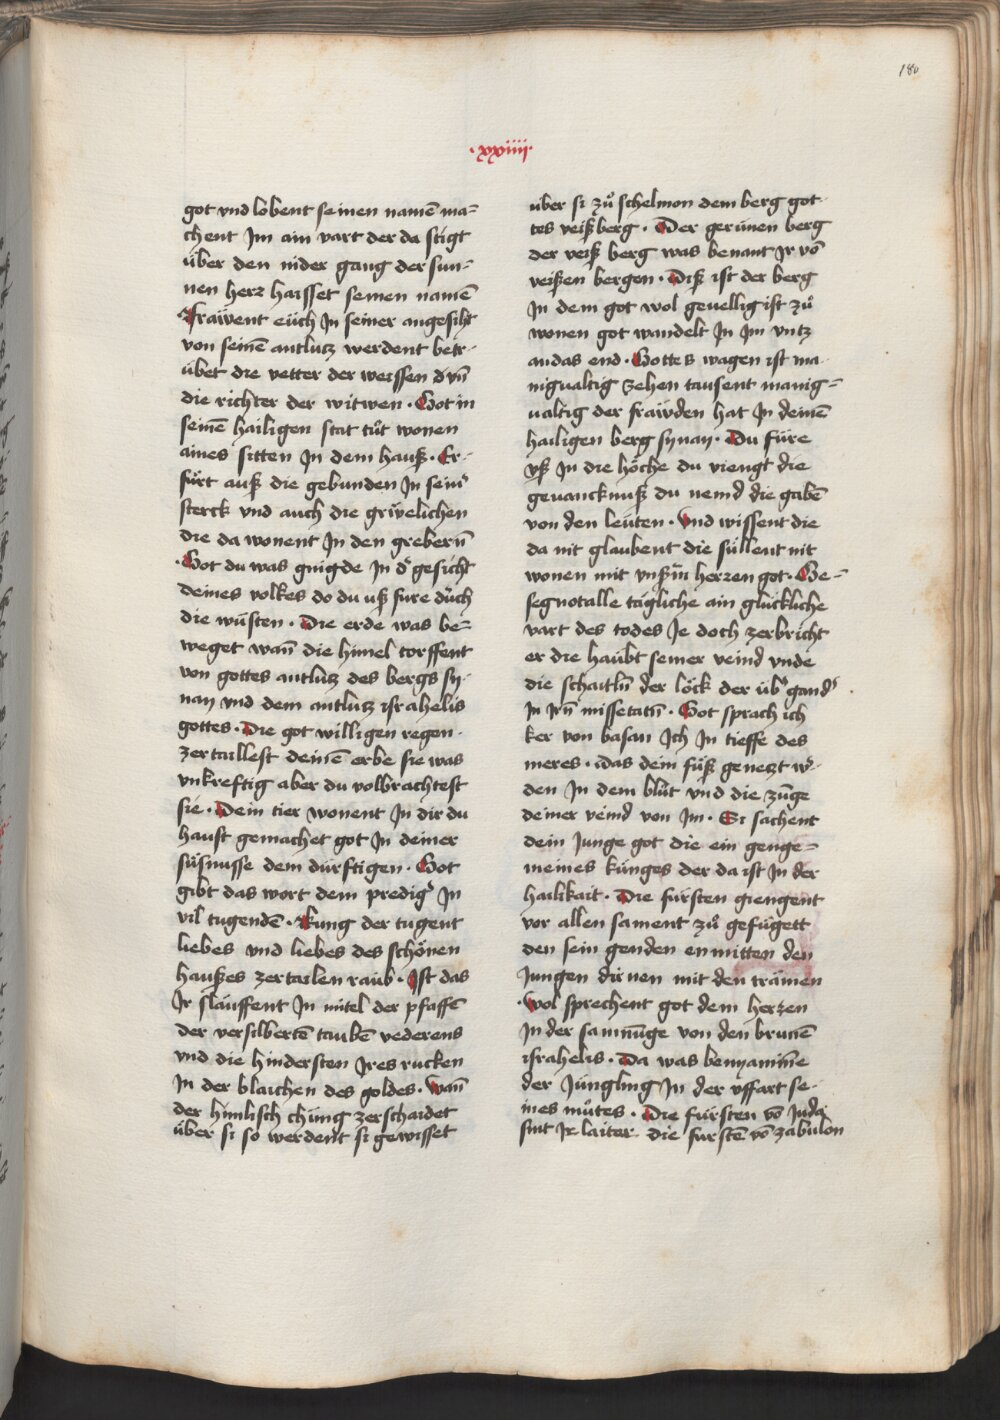 180
·xxiiii·
got vnd lobent seinen namē ma=
chent Im ain vart der da stigt
über den nider gang der sun=
nen herr haisset seinen namē
Fräwent eüch In seiner angesiht
von seinē antlutz werdent betr-
übet die vetter der weissen d vn̄
die richter der witwen · Got in
seinē hailigen stat tůt wonen
aines sitten In dem hauß · Er-
fürt auß die gebunden In sein͛
sterck vnd auch die grüelichen
die da wonent In den grebern̄
· Got du was gnigde In d͛ gesicht
deines volkes do du uß fure důch
die wüsten · Die erde was be=
weget wan̄ die himel torffent
von gottes antlutz des bergs sy-
nay vnd dem antlutz israhelis
gottes · Die got willigen regen-
zertaillest deinē erbe sie was
vnkreftig aber du volbrachtest
sie · Dein tier wonent In dir du
haust gemachet got In deiner
süsnusse dem dürftigen · Got
gibt das wort dem predig͛ In
vil tugendē · Kung der tugent
liebes vnd liebes des schönen
haußes zertailen raub · Ist das
Ir slauffent In mitel der pfaffē
der versilbertē taubē vederens
vnd die hindersten Ires rucken
In der blaichen des goldes · Wan̄
der himlisch chüng zerschaidet
über si so werdent si gewisset
über si zů schelmon dem berg got-
tes veißberg · Der gerunen berg
der veiß berg was benant Ir vō
veißen bergen · Diß ist der berg
In dem got wol geuellig ist zů
wonen got wandelt In Im vntz
an das end · Gottes wagen ist ma-
nigualtig zehen tausent manig=
ualtig der fräwden hat In deinē
hailigen berg synay · Du füre
vß In die höche du viengt die
geuancknuß du nemd die gabē
von den leüten · Vnd wissent die
da nit glaubent die süllent nit
wonen mit vnßm̄ herzen got · Ge=
segnot alle tägliche ain glückliche
vart des todes Je doch zerbricht
er die haübt seiner veind vnde
die schaitln̄ der löck der üb͛gand͛
In Irn̄ missetatn̄ · Got sprach ich
ker von basan Ich In tieffe des
meres · das dein füß genetzt w͛-
den In dem blůt vnd die zūge
deiner veind von Im · Si sachent
dein Junge got die ein genge=
meines künges der da ist In der
hailikait · Die fursten giengent
vor allen sament zů gefügett
den sein genden enmitten den
Jungen dirnen mit den träinen
· Wol sprechent got dem herzen
In der samnūge von den brunē
israhelis · Da was benyaminē
der Jüngling In der vffart se-
ines můtes · Die fürsten vō Juda
sint Ir laiter die furstē vō zabulon